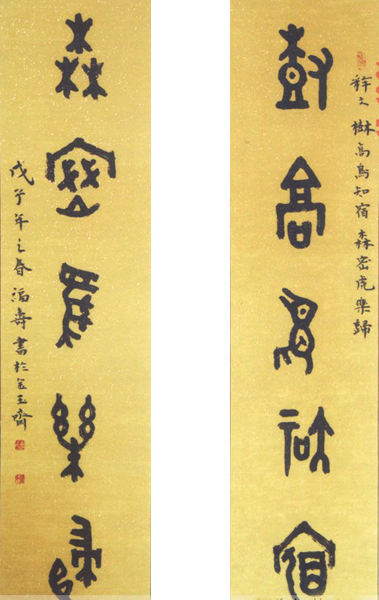 釋文 樹高鳥知宿森密虎樂歸
樹高鳥知宿
森密虎樂歸
戊子年之春福壽書於金玉齋